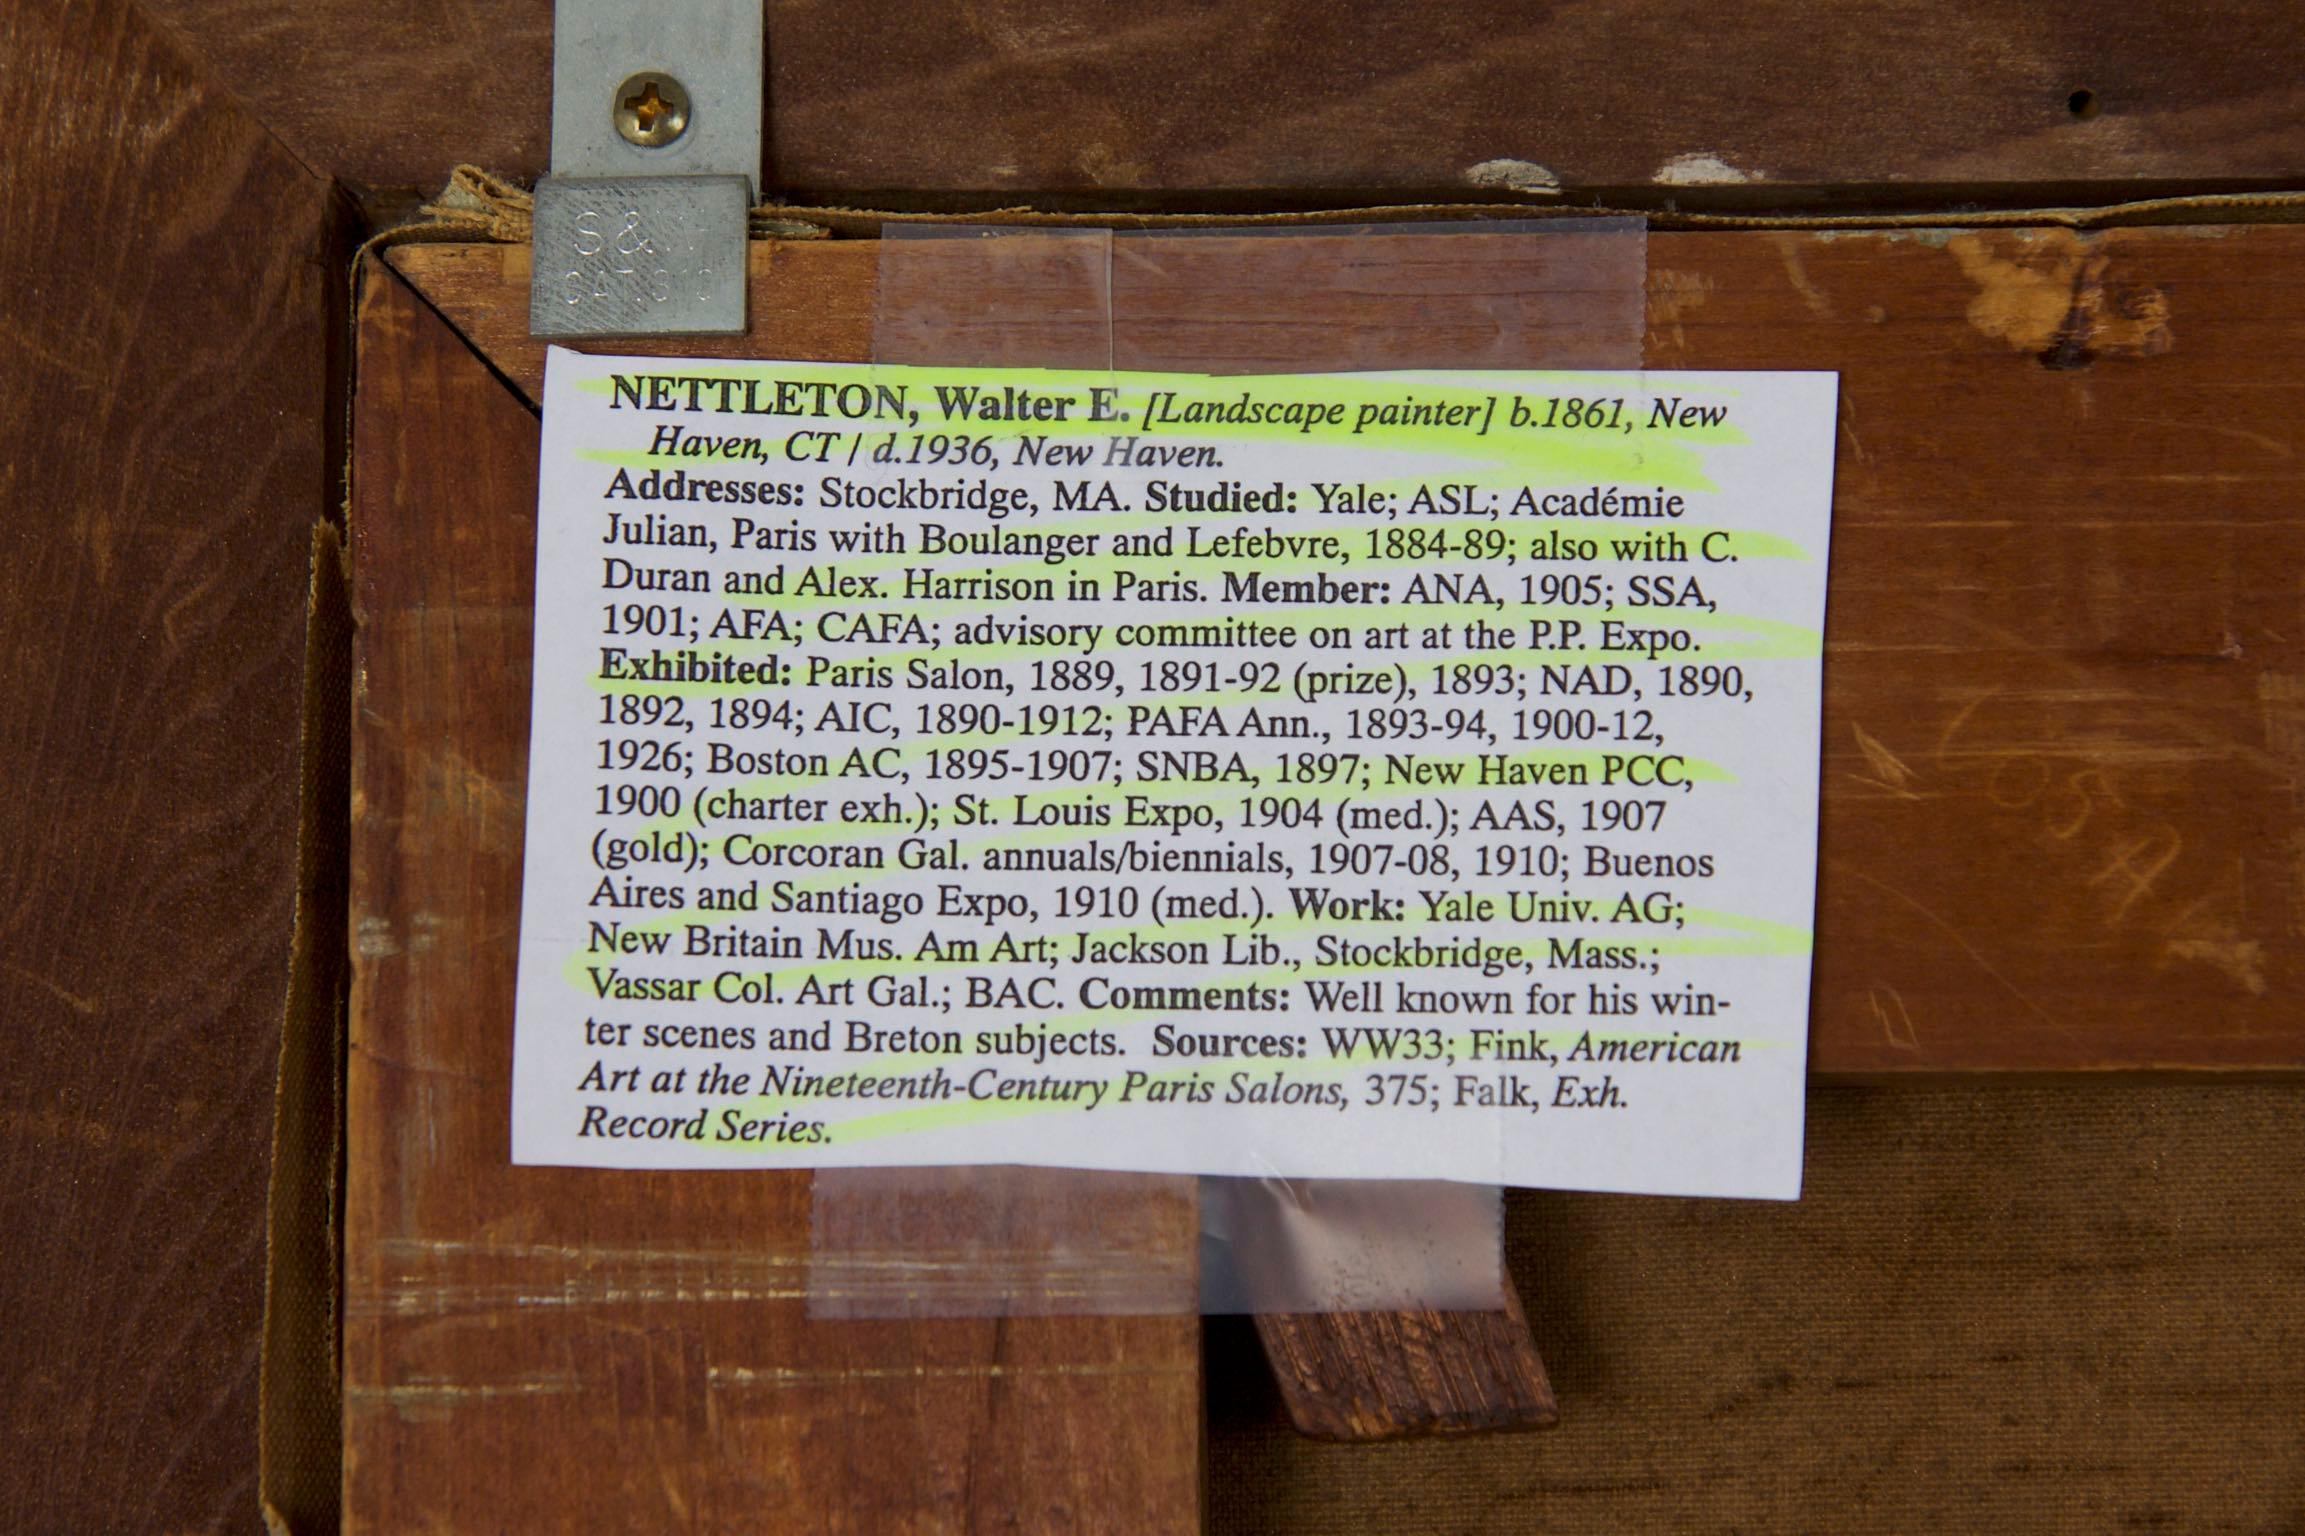 S & W
CAT.818
NETTLETON, Walter E. [Landscape painter] b.1861, New
Haven, CT / d.1936, New Haven.
Addresses: Stockbridge, MA. Studied: Yale; ASL; Académie
Julian, Paris with Boulanger and Lefebvre, 1884-89; also with C.
Duran and Alex. Harrison in Paris. Member: ANA, 1905; SSA,
1901; AFA; CAFA; advisory committee on art at the P.P. Expo.
Exhibited: Paris Salon, 1889, 1891-92 (prize), 1893; NAD, 1890,
1892, 1894; AIC, 1890-1912; PAFA Ann., 1893-94, 1900-12,
1926; Boston AC, 1895-1907; SNBA, 1897; New Haven PCC,
1900 (charter exh.); St. Louis Expo, 1904 (med.); AAS, 1907
(gold); Corcoran Gal. annuals/biennials, 1907-08, 1910; Buenos
Aires and Santiago Expo, 1910 (med.). Work: Yale Univ. AG;
New Britain Mus. Am Art; Jackson Lib., Stockbridge, Mass.;
Vassar Col. Art Gal.; BAC. Comments: Well known for his win-
ter scenes and Breton subjects. Sources: WW33; Fink, American
Art at the Nineteenth-Century Paris Salons, 375; Falk, Exh.
Record Series.